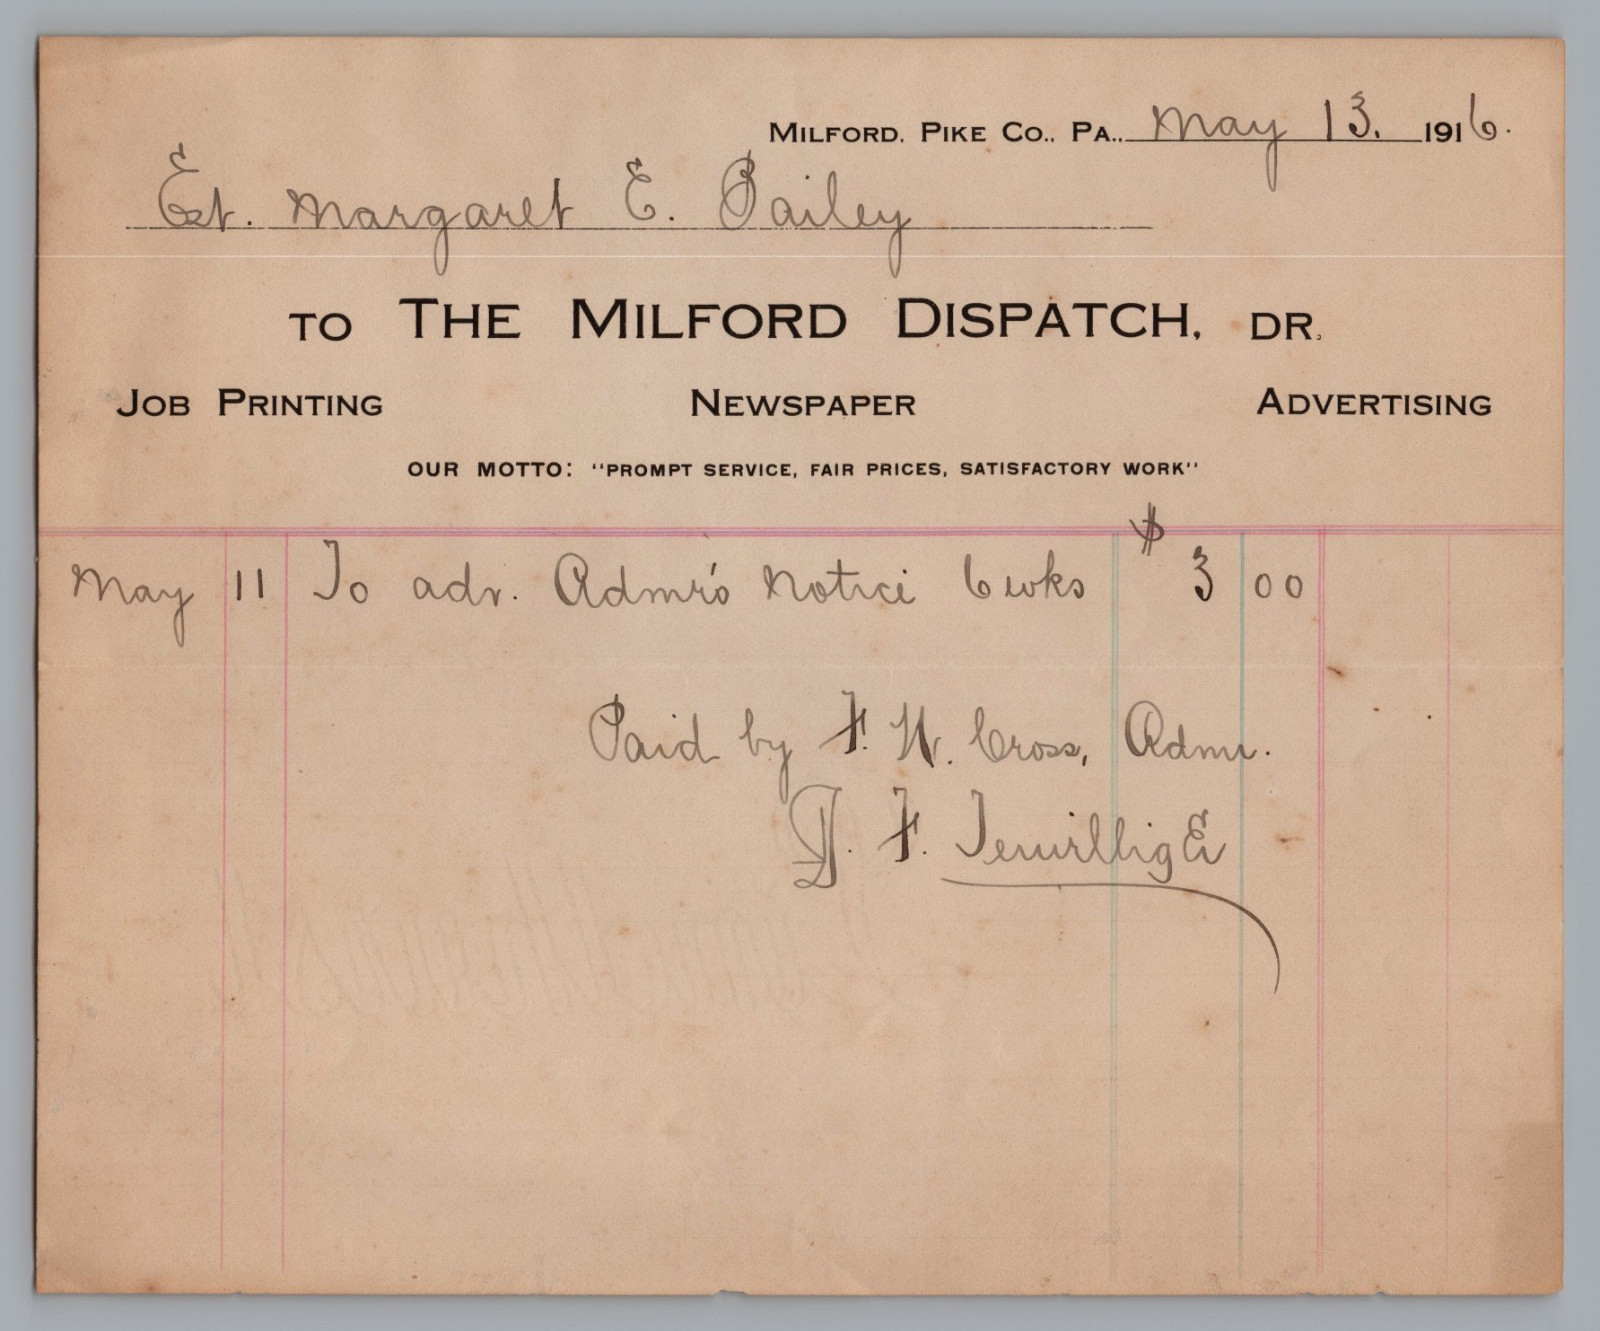 MILFORD, PIKE CO., PA., May 13. 1916.
Est. Margaret E. Bailey
TO THE MILFORD DISPATCH, DR.
JOB PRINTING NEWSPAPER ADVERTISING
OUR MOTTO: "PROMPT SERVICE, FAIR PRICES, SATISFACTORY WORK"
$
May 11 To adv. Admr's Notice 6 wks 3 00
Paid by F. W. Cross, Admr.
F. Terwilliger